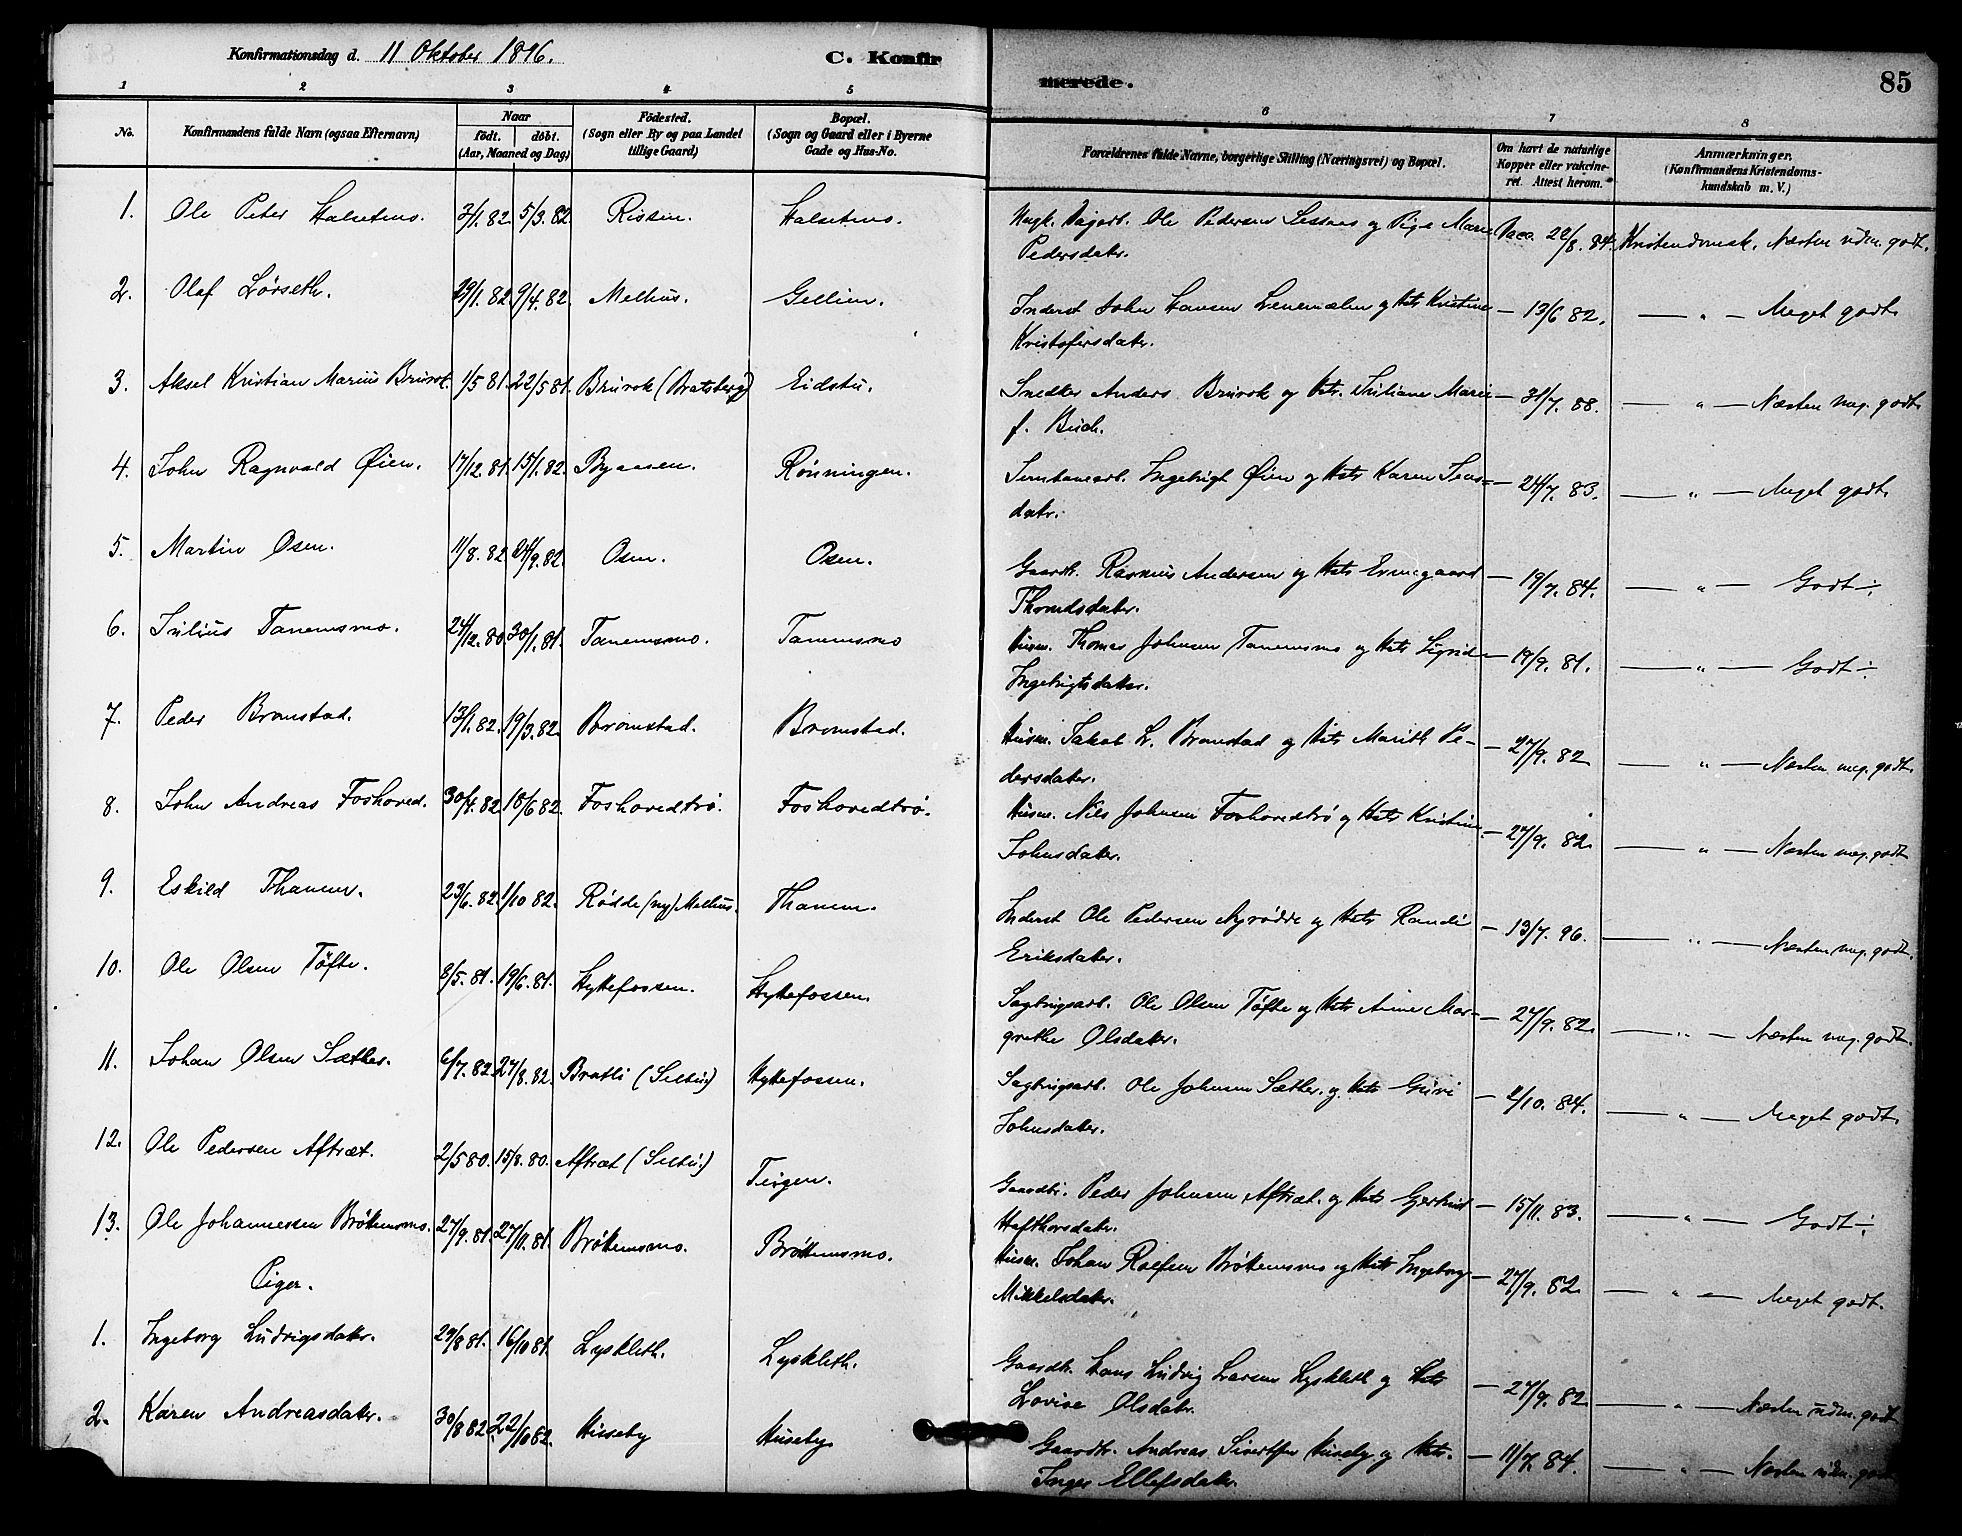 Konfirmationsdag d. 11 Oktober 1896. C. Konfir merede. 85
1 2 3 4 5 6 7 8
No. Konfirmandens fulde Navn (ogsaa Efternavn) Naar födt. döbt. (Aar, Maaned og Dag) Födested. (Sogn eller By og paa Landet tillige Gaard) Bopæl. (Sogn og Gaard eller i Byerne Gade og Hus-No. Forældrenes fulde Navne, borgerlige Stilling (Næringsvei) og Bopæl. Om havt de naturlige Kopper eller vakcineret. Attest herom. Anmærkninger. (Konfirmandens Kristendomskundskab m. V.)
1. Ole Peter Halsetmo. 3/1. 82. 5/3. 82. Rissen. Halsetmo. Ungk. Dagarb. Ole Pedersen og Pige Marie Vacc. 22/8. 84. Kristendomsk. Næsten udm. godt.
Pedersdater.
2. Olaf Lørseth. 29/1. 82. 9/4. 82. Melhus. Inderst John Hansen og Hst. Kristine — 13/6 82. — " — Meget godt.
Kristofersdater.
3. Aksel Kristian Marius Brurok. 1/5 81. 22/5 81. Brurok (Bratsberg) Eidstu. Snedker Anders Brurok og Hst. Juliane Marie — 31/7. 88. — " — Næsten meg. godt.
f. Buch.
4. John Ragnvald Øien. 17/12. 81. 15/1. 82. Byaasen. Rönningen. Ingebrigt Øien og Hst. Karen Jens- — 24/7. 83. — " — Meget godt.
datr.
5. Martin Osen. 11/8. 82. 24/9. 82. Osen. Osen. Gaardb. Rasmus Andersen og Hst. Ermegaard — 19/7. 84. — " — Godt ÷.
Thomasdater.
6. Julius Tanemsmo. 24/12. 80. 30/1. 81. Tanemsmo. Tanemsmo Husm. Thomas Johnsen Tanemsmo og Hst. Sigrid — 19/9. 81. — " — Godt ÷.
Ingebrigtsdater.
7. Peder Bromstad. 13/1. 82. 19/3. 82. Bromstad. Bromstad. Husm. Jakob L. Bromstad og Hst. Marith Pe- — 27/9. 82 — " — Næsten meg. godt.
dersdater.
8. John Andreas Foshoved. 30/4. 82. 18/6 82. Foshovedtrø. Foshovedtrø. Husm. Nils Johnsen Foshovedtrø og Hst. Kristine — 27/9. 82. — " — Næsten meg. godt.
Johnsdater.
9. Eskild Thanem. 23/6. 82. 1/10 82. Rødde (ny) Melhus. Thanem. Inderst Ole Pedersen Nyrødde og Hst. Randi — 13/7. 96. — " — Næsten meg. godt.
Eriksdater.
10. Ole Olsen Tøfte. 8/5. 81. 19/6. 81. Hyttefossen. Hyttefossen. Sagbrugsarb. Ole Olsen Tøfte og Hst. Anne Mar- — 27/9. 82. — " — Næsten meg. godt.
grethe Olsdater.
11. Johan Olsen Sæther. 6/7. 82. 27/8. 82. Bratli (Selbu) Hyttefossen. Sagbrugsarb. Ole Johnsen Sæther. og Hst. Guri — 2/10. 84. — " — Meget godt.
Johnsdater.
12. Ole Pedersen Aftræt. 2/5 80. 15/8. 80. Aftræt (Selbu) Teigen. Gaardbr. Peder Johnsen Aftræt. og Hst. Gjertrud — 15/11. 83. — " — Godt ÷.
Hafthorsdater.
13. Ole Johannessen Brøttemsmo. 27/9. 81. 27/11. 81. Brøttemsmo. Brøttemsmo. Husm. Johan Brøttemsmo og Hst. Ingeborg — 27/9. 82. — " — Meget godt.
Mikkelsdater.
Piger.
1. Ingeborg Ludvigsdater. 29/8 81. 16/10 81. Lyskleth. Lyskleth. Gaardb. Hans Ludvig Larsen Lyskleth og Hst. — 27/9. 82 — " — Næsten udm. godt
Lovise Olsdater.
2. Karen Andreasdater. 30/8 82. 22/10 82. Huseby Huseby Gaardb. Andreas Sivertsen Huseby og Hst. — 11/7. 84. — " — Næsten udm. godt
Inger Ellefsdater.